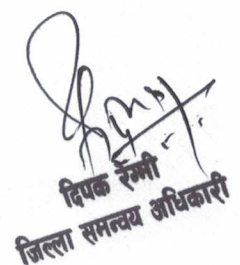 दिपक रेग्मी
जिल्ला समन्वय अधिकारी